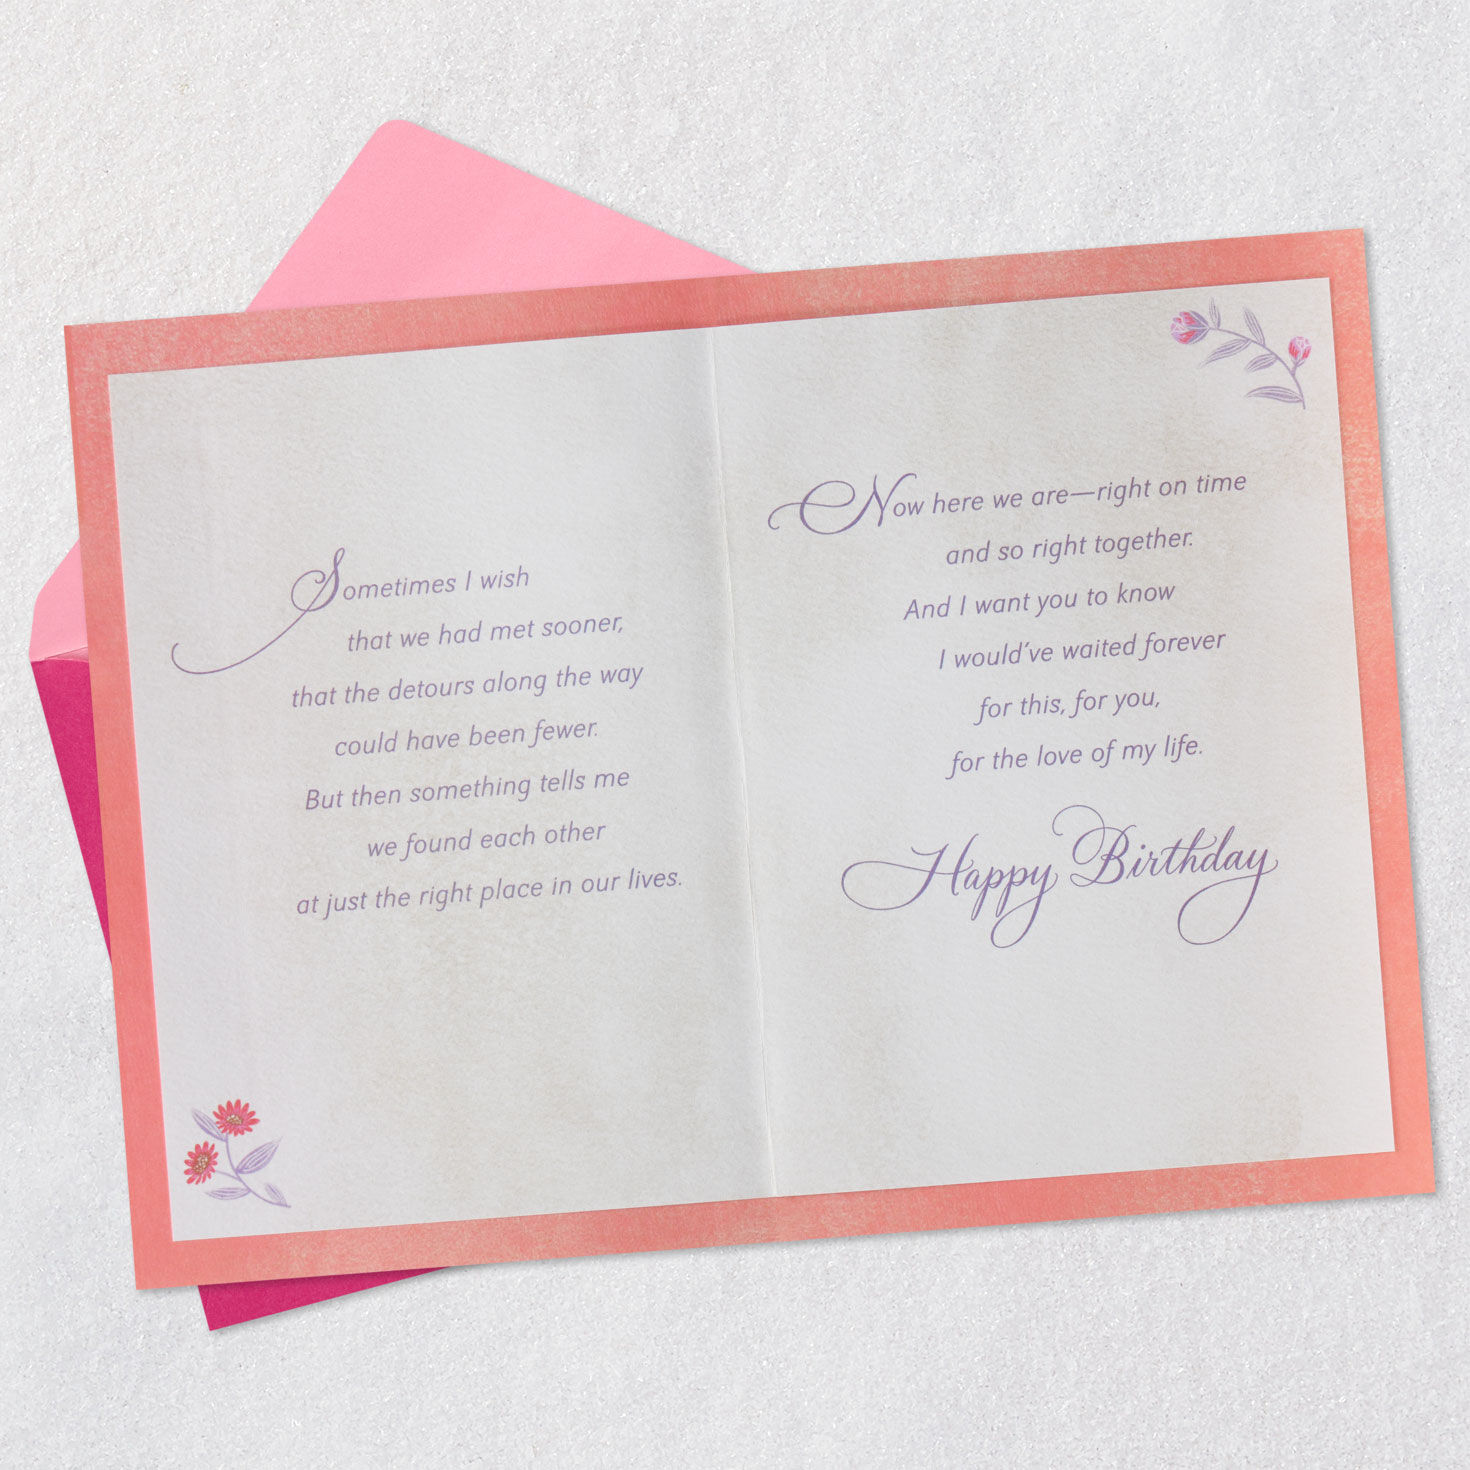 Sometimes I wish
that we had met sooner,
that the detours along the way
could have been fewer.
But then something tells me
we found each other
at just the right place in our lives.
Now here we are—right on time
and so right together.
And I want you to know
I would've waited forever
for this, for you,
for the love of my life.
Happy Birthday